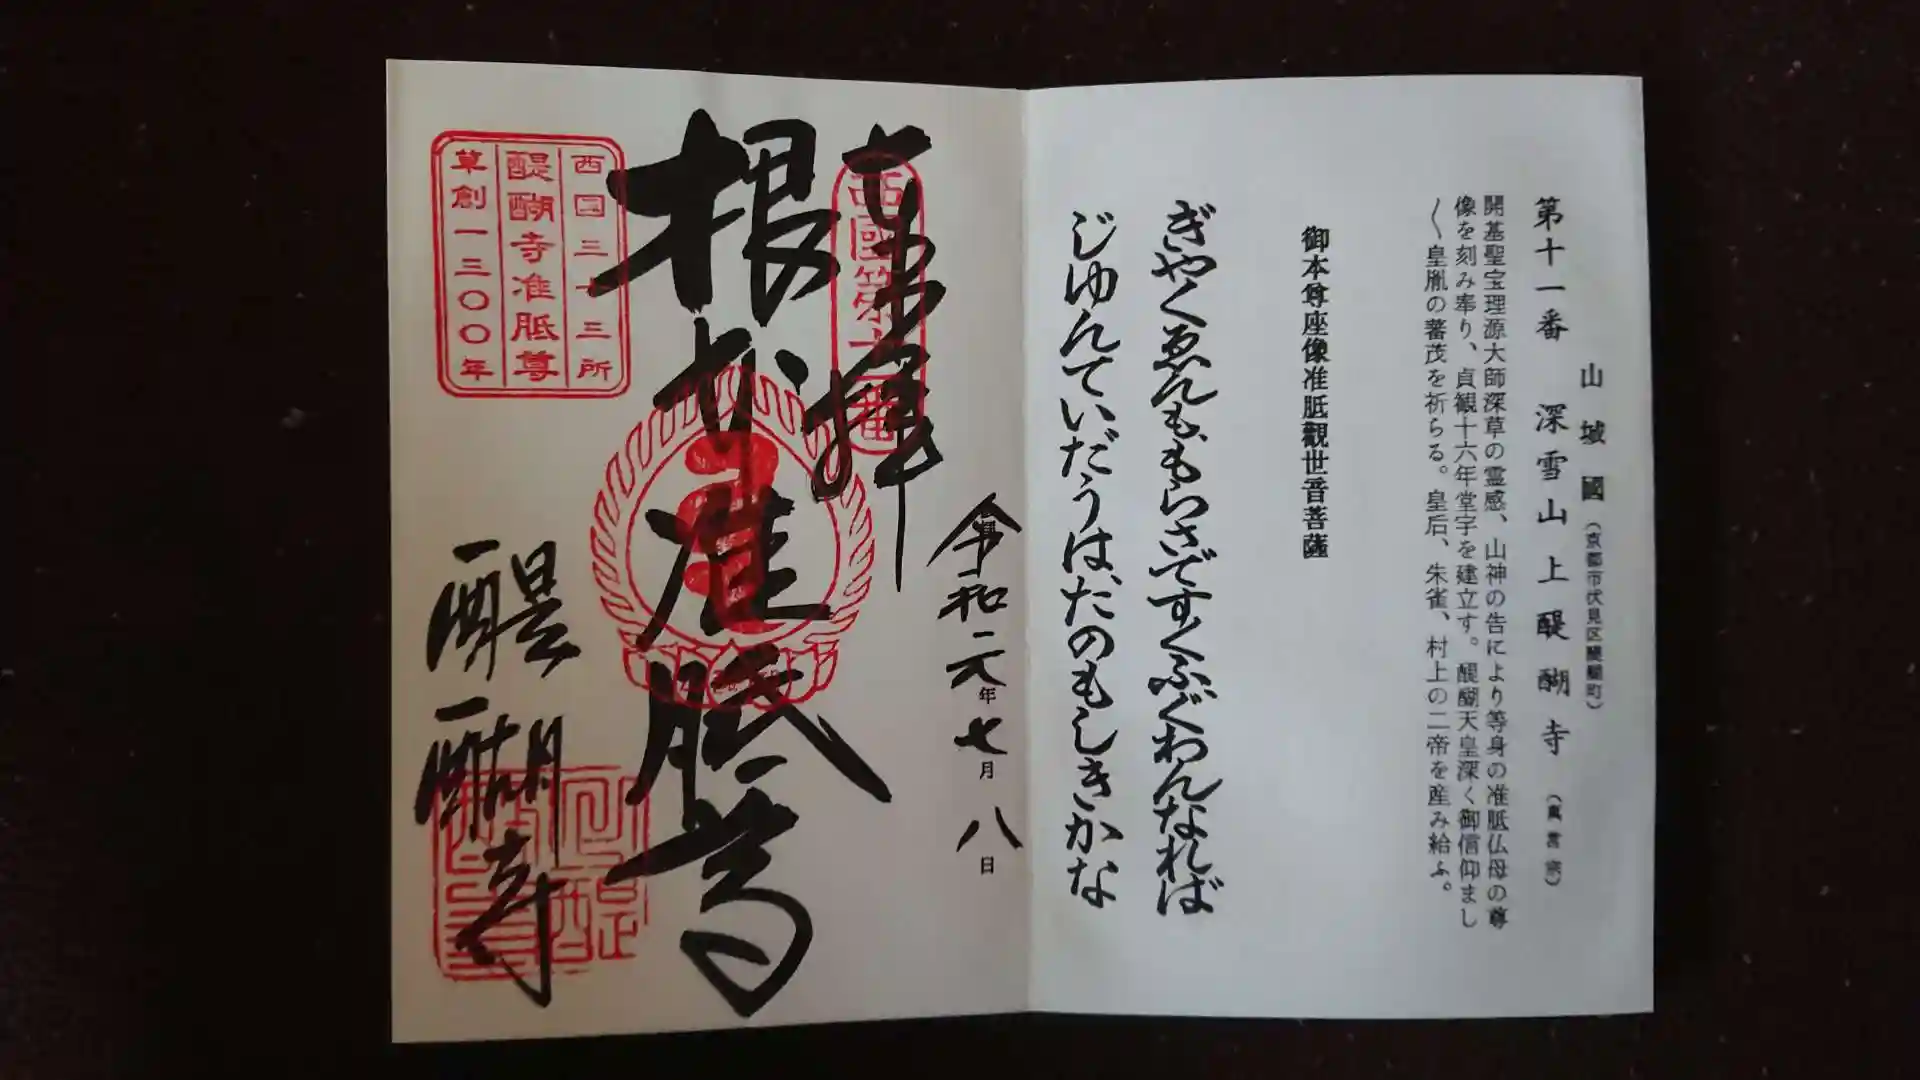 山城國（京都市伏見区醍醐町）
第十一番　深雪山上醍醐寺（真言宗）
開基聖宝理源大師深草の霊感、山神の告により等身の准胝仏母の尊
像を刻み奉り、貞観十六年堂宇を建立す。醍醐天皇深く御信仰まし
〱皇胤の蕃茂を祈らる。皇后、朱雀、村上の二帝を産み給ふ。
御本尊座像准胝觀世音菩薩
ぎやくゑんももらさですくふぐわんなれば
じゆんていだうはたのもしきかな
令和元年七月八日
奉拝
西國第十一番
根本准胝尊
西国三十三所
醍醐寺准胝尊
草創一三〇〇年
醍醐寺